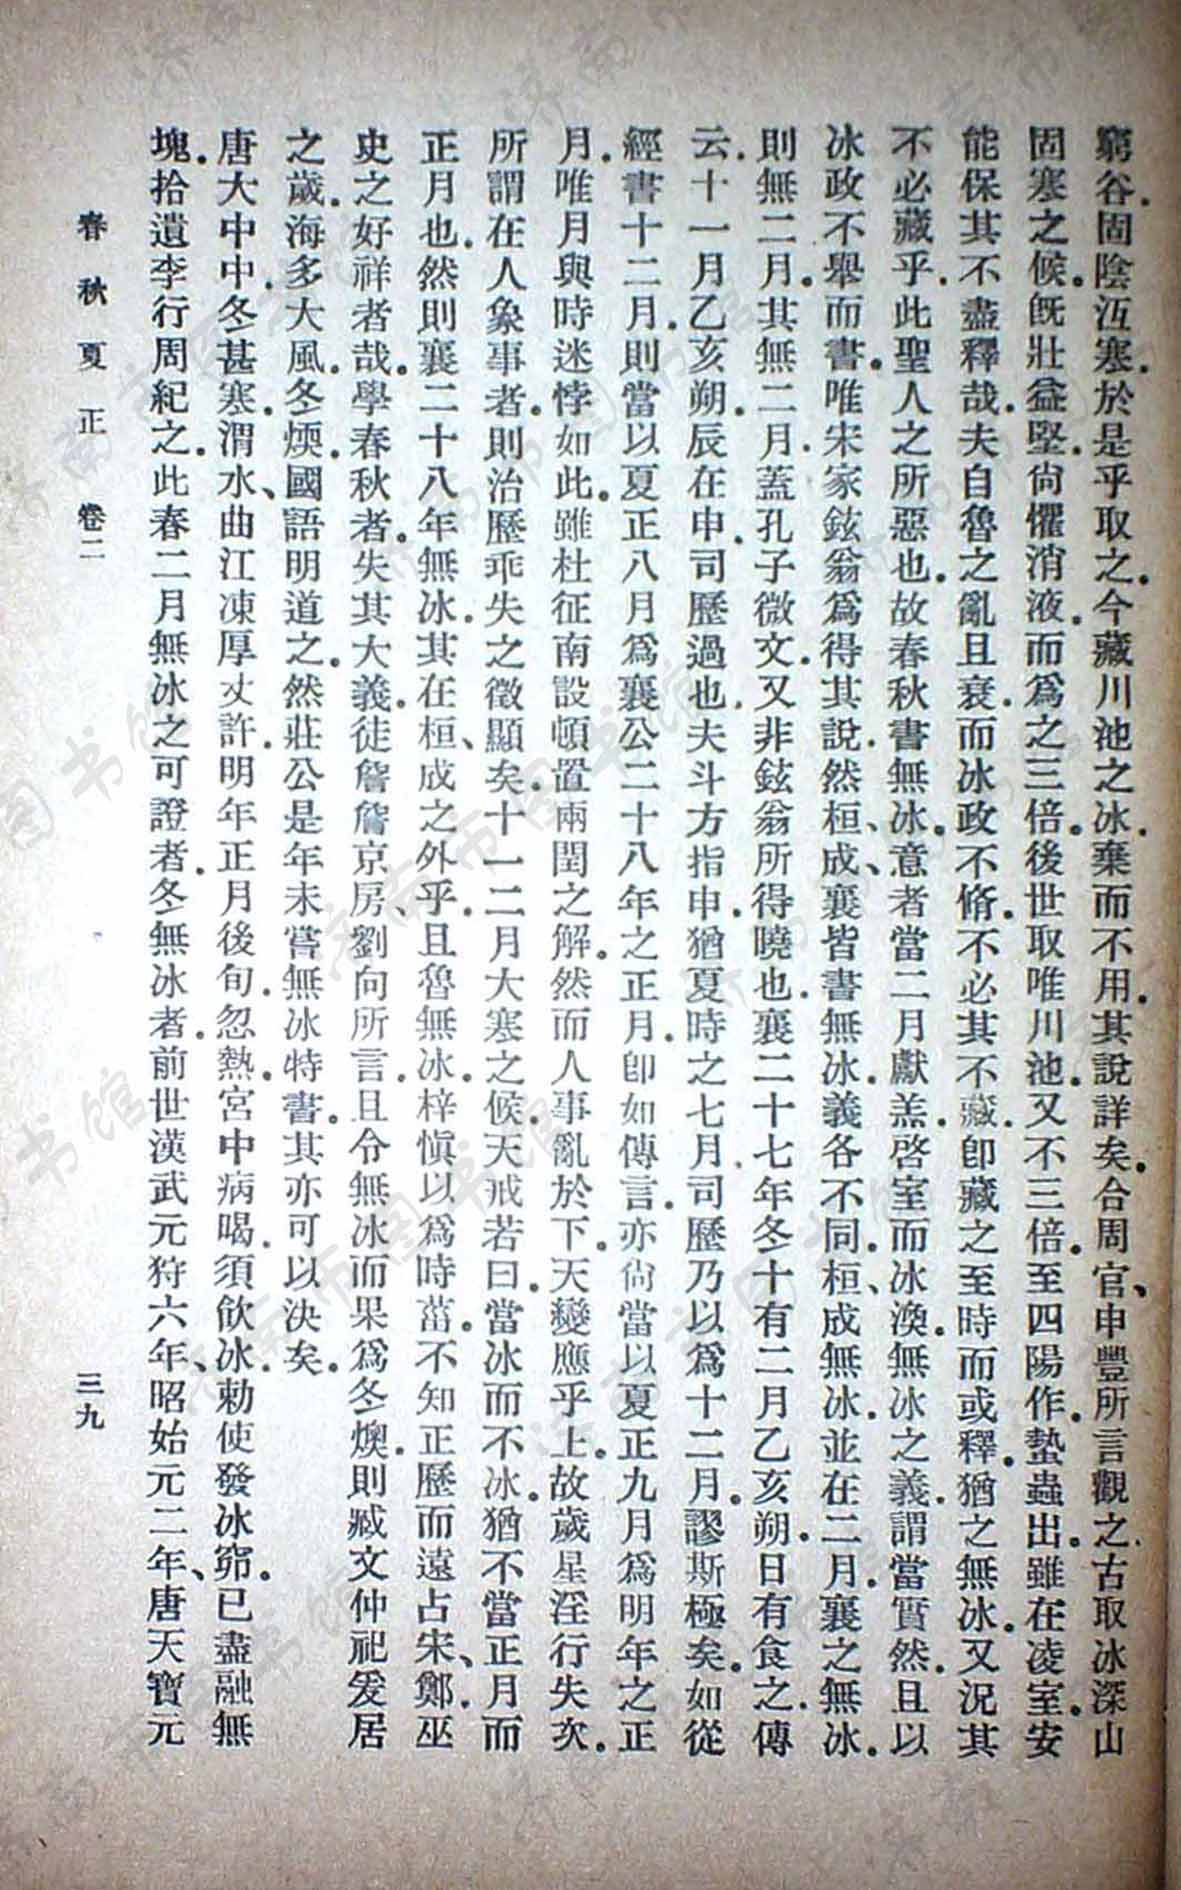 窮谷固陰沍寒於是乎取之今藏川池之冰棄而不用其說詳矣合周官申豐所言觀之古取冰深山
固寒之候旣壯益堅尙懼消液而爲之三倍後世取唯川池又不三倍至四陽作蟄蟲出雖在凌室安
能保其不盡釋哉夫自魯之亂且衰而冰政不脩不必其不藏卽藏之至時而或釋猶之無冰又況其
不必藏乎此聖人之所惡也故春秋書無冰意者當二月獻羔啓室而冰渙無冰之義謂當實然且以
冰政不舉而書唯宋家鉉翁爲得其說然桓、成、襄皆書無冰義各不同桓、成無冰並在二月襄之無冰
則無二月其無二月蓋孔子微文又非鉉翁所得曉也襄二十七年冬十有二月乙亥朔日有食之傳
云十一月乙亥朔辰在申司歷過也夫斗方指申猶夏時之七月司歷乃以爲十二月謬斯極矣如從
經書十二月則當以夏正八月爲襄公二十八年之正月卽如傳言亦尙當以夏正九月爲明年之正
月唯月與時迷悖如此雖杜征南設頓置兩閏之解然而人事亂於下天變應乎上故歲星淫行失次
所謂在人象事者則治歷乖失之徵顯矣十一二月大寒之候天戒若曰當冰而不冰猶不當正月而
正月也然則襄二十八年無冰其在桓、成之外乎且魯無冰梓愼以爲時菑不知正歷而遠占宋、鄭巫
史之好祥者哉學春秋者失其大義徒詹詹京房、劉向所言且令無冰而果爲冬燠則臧文仲祀爰居
之歲海多大風冬煗國語明道之然莊公是年未嘗無冰特書其亦可以決矣
唐大中中冬甚寒渭水、曲江凍厚丈許明年正月後旬忽熱宮中病暍須飮冰勅使發冰窌已盡融無
塊拾遺李行周紀之此春二月無冰之可證者冬無冰者前世漢武元狩六年、昭始元二年、唐天寶元
春秋夏正 卷二
三九